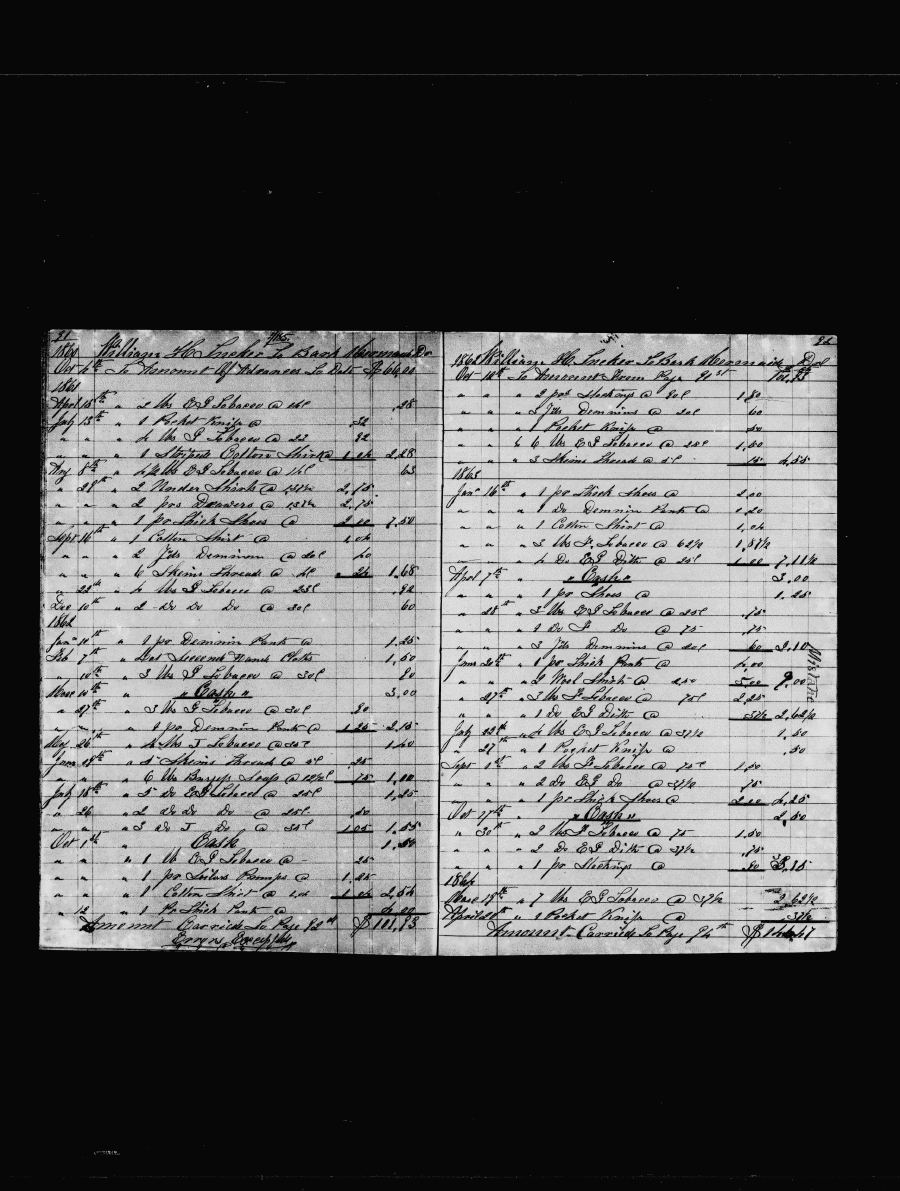 91
1860 William H Tucker To Bark Mermaid Dr
Oct 6th To Amount Of Advances To Date $66.00
1861
April 18th " 2 lbs C I Tobacco @ 14c .28
July 13th " 1 Pocket Knife @ 32
" " " 4 lbs I Tobacco @ 23 92
" " " 1 Striped Cotton Shirt @ 1.04 2,28
Aug 8th " 4 1/2 lbs C I Tobacco @ 14c 63
" 28th " 2 Under Shirts @ 1.37 1/2 2,75
" " " 2 prs Drawers @ 1.37 1/2 2,75
" " " 1 pr Thick Shoes @ 2.00 7,50
Sept 16th " 1 Cotton Shirt @ 1.04
" " " 2 Yds Demmin @ 20c 40
" " " 6 Skeins Thread @ 4c 24 1,68
" 23d " 4 lbs I Tobacco @ 23c .92
Dec 10th " 2 Do Do Do @ 30c 60
1862
Jan 10th " 1 pr Demmin Pants @ 1.25
Feb 7th " Lot Second Hand Cloths 1,50
" 10th " 3 lbs I Tobacco @ 30c 90
Mar 10th " " Cash " 3,00
" 27th " 3 lbs I Tobacco @ 30c 90
" " " 1 pr Demmin Pants @ 1.25 2,15
May 26th " 4 lbs I Tobacco @ 35c 1.40
June " 5 Skeins Thread @ 5c .25
" " " 6 lbs Soap @ 12 1/2c 75 1,00
July 18th " 5 Do C I Tobacco @ 25c 1,25
" 26 " 2 Do Do Do @ 25c .50
" " " 3 Do I Do @ 35c 1.05 1,55
Oct 1st " Cash 1.50
" " " 1 lb C I Tobacco @ 25
" " " 1 pr Pumps @ 1.25
" " " 1 Cotton Shirt @ 1.04 1.04 2,54
" 12 " 1 Pr Thick Pants @ 4.00
Amount Carried To Page 92d $101,93
Errors Excepted
92
1862 William H. Tucker To Bark Mermaid Dr
Oct 12th To Amount From Page 91st 101.93
" " " 2 prs Stockings @ 90c 1,80
" " " 3 Yds Demmins @ 20c 60
" " " 1 Pocket Knife @ 50
" " " 6 lbs C I Tobacco @ 25c 1,50
" " " 3 Skeins Thread @ 5c 15 4,55
1863
Jan 16th " 1 pr Thick Shoes @ 2.00
" " " 1 Do Demmin Pants @ 1.20
" " " 1 Cotton Shirt @ 1,04
" " " 3 lbs I Tobacco @ 62 1/2 1,87 1/2
" " " 4 Do C I Ditto @ 25c 1.00 7,11 1/2
April 7th " " Cash " 3.00
" " " 1 pr Shoes @ 1.25
" 28th " 3 lbs C I Tobacco @ 25c .75
" " " 1 Do I Do @ 75 .75
" " " 3 Yds Demmins @ 20c 60 2,10
June 20th " 1 pr Thick Pants @ 4,00
" " " 2 Wool Shirts @ 2.50 5.00 9,00
" 27th " 3 lbs I Tobacco @ 75c 2,25
" " " 1 Do C I Ditto @ .37 1/2 2,62 1/2
July 23d " 4 lbs C I Tobacco @ 37 1/2 1,50
" 27th " 1 Pocket Knife @ .50
Sept 1st " 2 lbs I Tobacco @ 75c 1,50
" " " 2 Do C I Do @ 37 1/2 75
" " " 1 pr Thick Shoes @ 2.00 4,25
Oct 17th " " Cash " 2,50
" 30th " 2 lbs I Tobacco @ 75 1.50
" " " 2 Do C I Ditto @ 37 1/2 .75
" " " 1 pr Stockings @ 90 3,15
1864
Mar 18th " 7 lbs C I Tobacco @ 37 1/2 2,62 1/2
April 20th " 1 Pocket Knife @ 37 1/2
Amount Carried To Page 94th